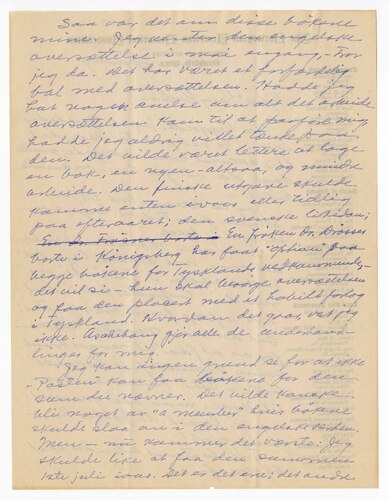 Saa var det om disse bøkene
mine. Jeg venter den engelske
oversættelse i mai engang, - tror
jeg da. Det har været et forfærdelig
bal med oversættelsen. Hadde jeg
hat nogen anelse om alt det arbeide
oversættelsen kom til at paaføre mig
hadde jeg aldrig villet tænke paa
den. Det vilde været lettere at lage
en bok, en ny en - altsaa, og mindre
arbeide. Den finske utgave skulde
komme enten ivaar eller tidlig
paa efteraaret; den svenske likedan;
En Dr. borte i En frøken Dr.
borte i Königsberg har faat "option" paa
begge bøkene for Tysklands vedkommende, -
det vil si - hun skal besørge oversættelsen
og faa den placert med et habilt forlag
i Tyskland. Hvordan det gaar, vet jeg
ikke. Aschehoug gjør alle de underhand-
linger for mig.
Jeg kan ingen grund se for at ikke
"Posten" kan faa bøkene for den
sum du nævner. Det vilde kanske
bli noget av "a member" hvis bøkene
skulde slaa an i den engelske verden.
Men - nu kommer det værste; Jeg
skulde like at faa den summen
1ste juli ivaar. Det er det ene; det andre